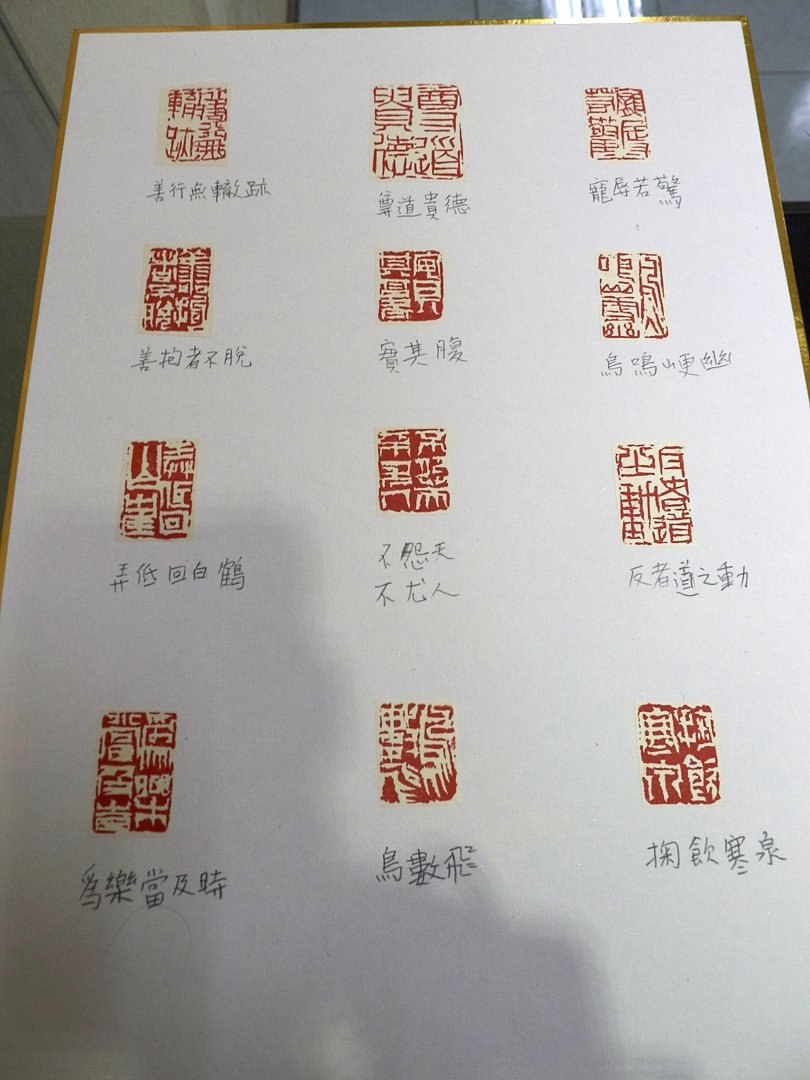 善行無轍跡
尊道貴德
寵辱若驚
善抱者不脫
實其腹
鳥鳴山更幽
弄低回白鶴
不怨天
不尤人
反者道之動
為樂當及時
鳥數飛
掬飲寒泉